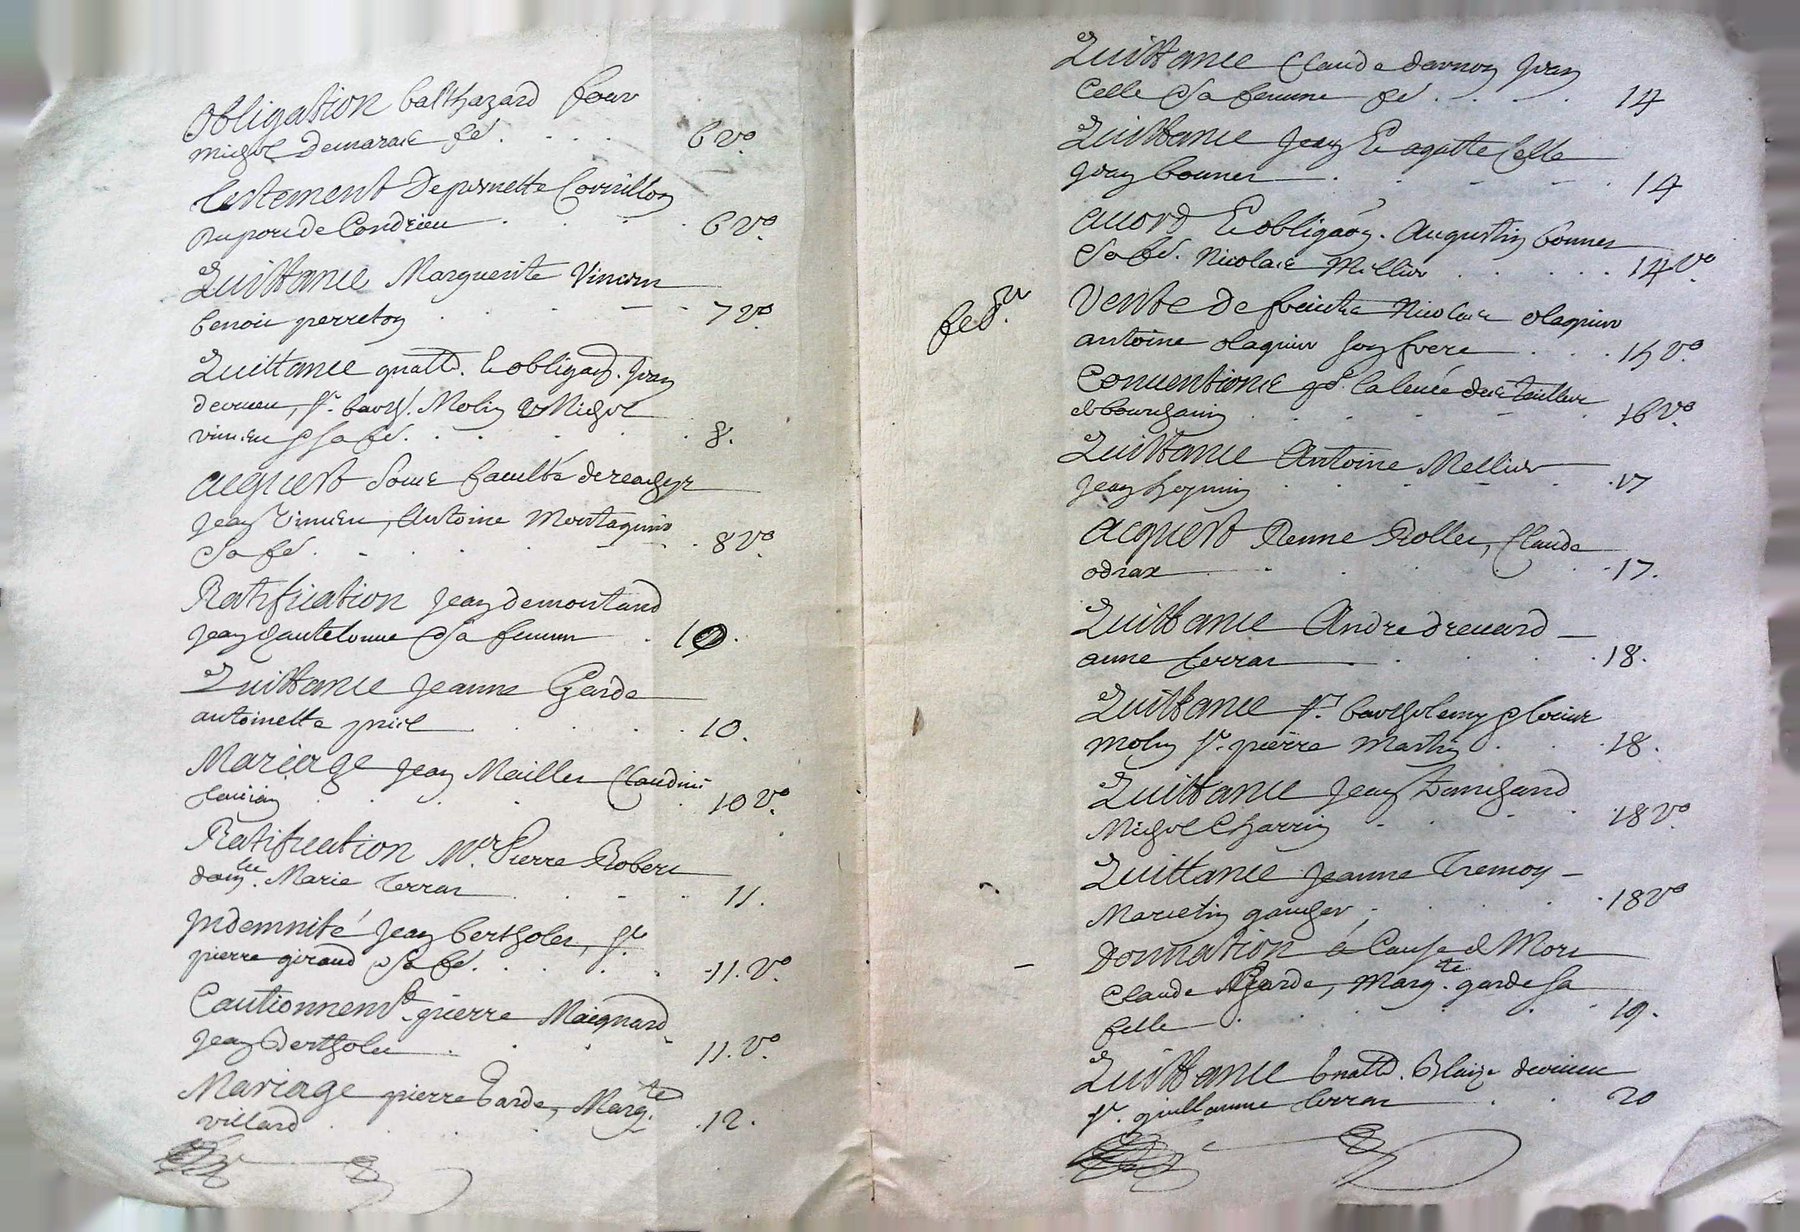 Obligation balthazard four
michel Demarare fé. 6 vo.
testement De pernette Cornillon
Du port de Condrieu 6 vo.
Quittance Marguerite Vincen
benoit perreton 7 vo.
Quittance gnalle. & obligaõn. Jean
devieu, Sr. barth. Molin & Michel
vincen & sa fé. 8.
acquest sous faculté de reachept
Jean Vincen, Antoine Montagnier
sa fé. 8 vo.
Ratiffication Jean demontand
Jean Gautelonne & sa femme 10.
Quittance Jeanne Garde
antoinette priel 10.
Mariage Jean Mailler Claudine
10 vo.
Ratification Mer Pierre Robert
damlle. Marie Terrar 11.
Indemnité Jean bertholet, Sr.
pierre giraud & sa fé. 11. vo.
Cautionnemt. pierre Maignard
Jean Bertholet 11. vo.
Mariage pierre Garde, Margte.
villard 12.
Quittance Claude darnon Jean
Celle & sa femme fé 14
Quittance Jean & agatte Celle
Jean bonnet 14
accord & obligaõn. Augustin bonnet
& sa fé. Nicolas Mellier 14 vo.
Vente de Nicolas olagnier
antoine olagnier son frere 15 vo.
Conventions pr. la levée des tailles
de bourchanin 16 vo.
Quittance Antoine Mellier
Jean 17
acquest Renne Rollet, Claude
odrax 17.
Quittance Andre dreuard
anne terrar 18.
Quittance Sr. barthelemy &
molin Sr. pierre Martin 18.
Quittance Jean
Michel Charrin 18 vo.
Quittance Jeanne Tremon
Marcelin gaucher 18 vo
Donnation à Cause de Mort
Claude Garde, Margte. garde sa
fille 19.
Quittance gnalle. Blaize devieu
Sr. guillaume terrar 20